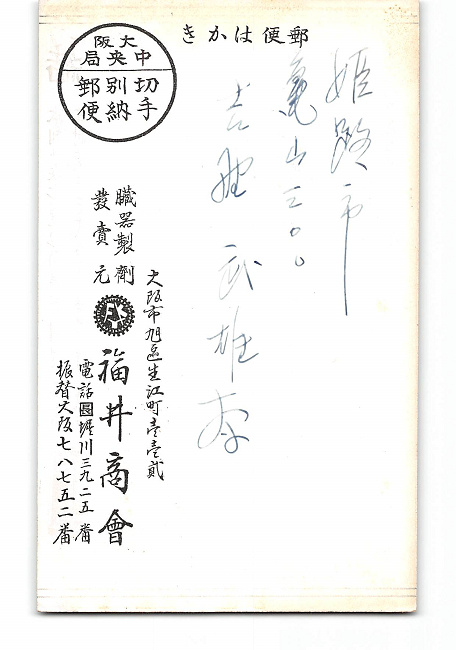 郵便はかき
姫路市
亀山三〇〇
吉野武雄
大阪
中央局
切手
別納
郵便
臓器製劑
發賣元
大阪市旭區生江町壱壱貳
福井商會
電話堀川三九二五番
振替大阪七八七五二番